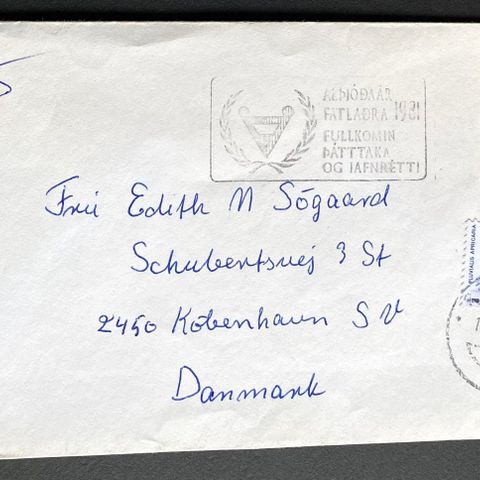 ALÞJÓÐAÁR
FATLAÐRA 1981
FULLKOMIN
ÞÁTTTAKA
OG JAFNRÉTTI
Frú Edith N Sögaard
Schubertsvej 3 St
2450 Köbenhavn SV
Danmark
PLUVIALIS APRICARIA